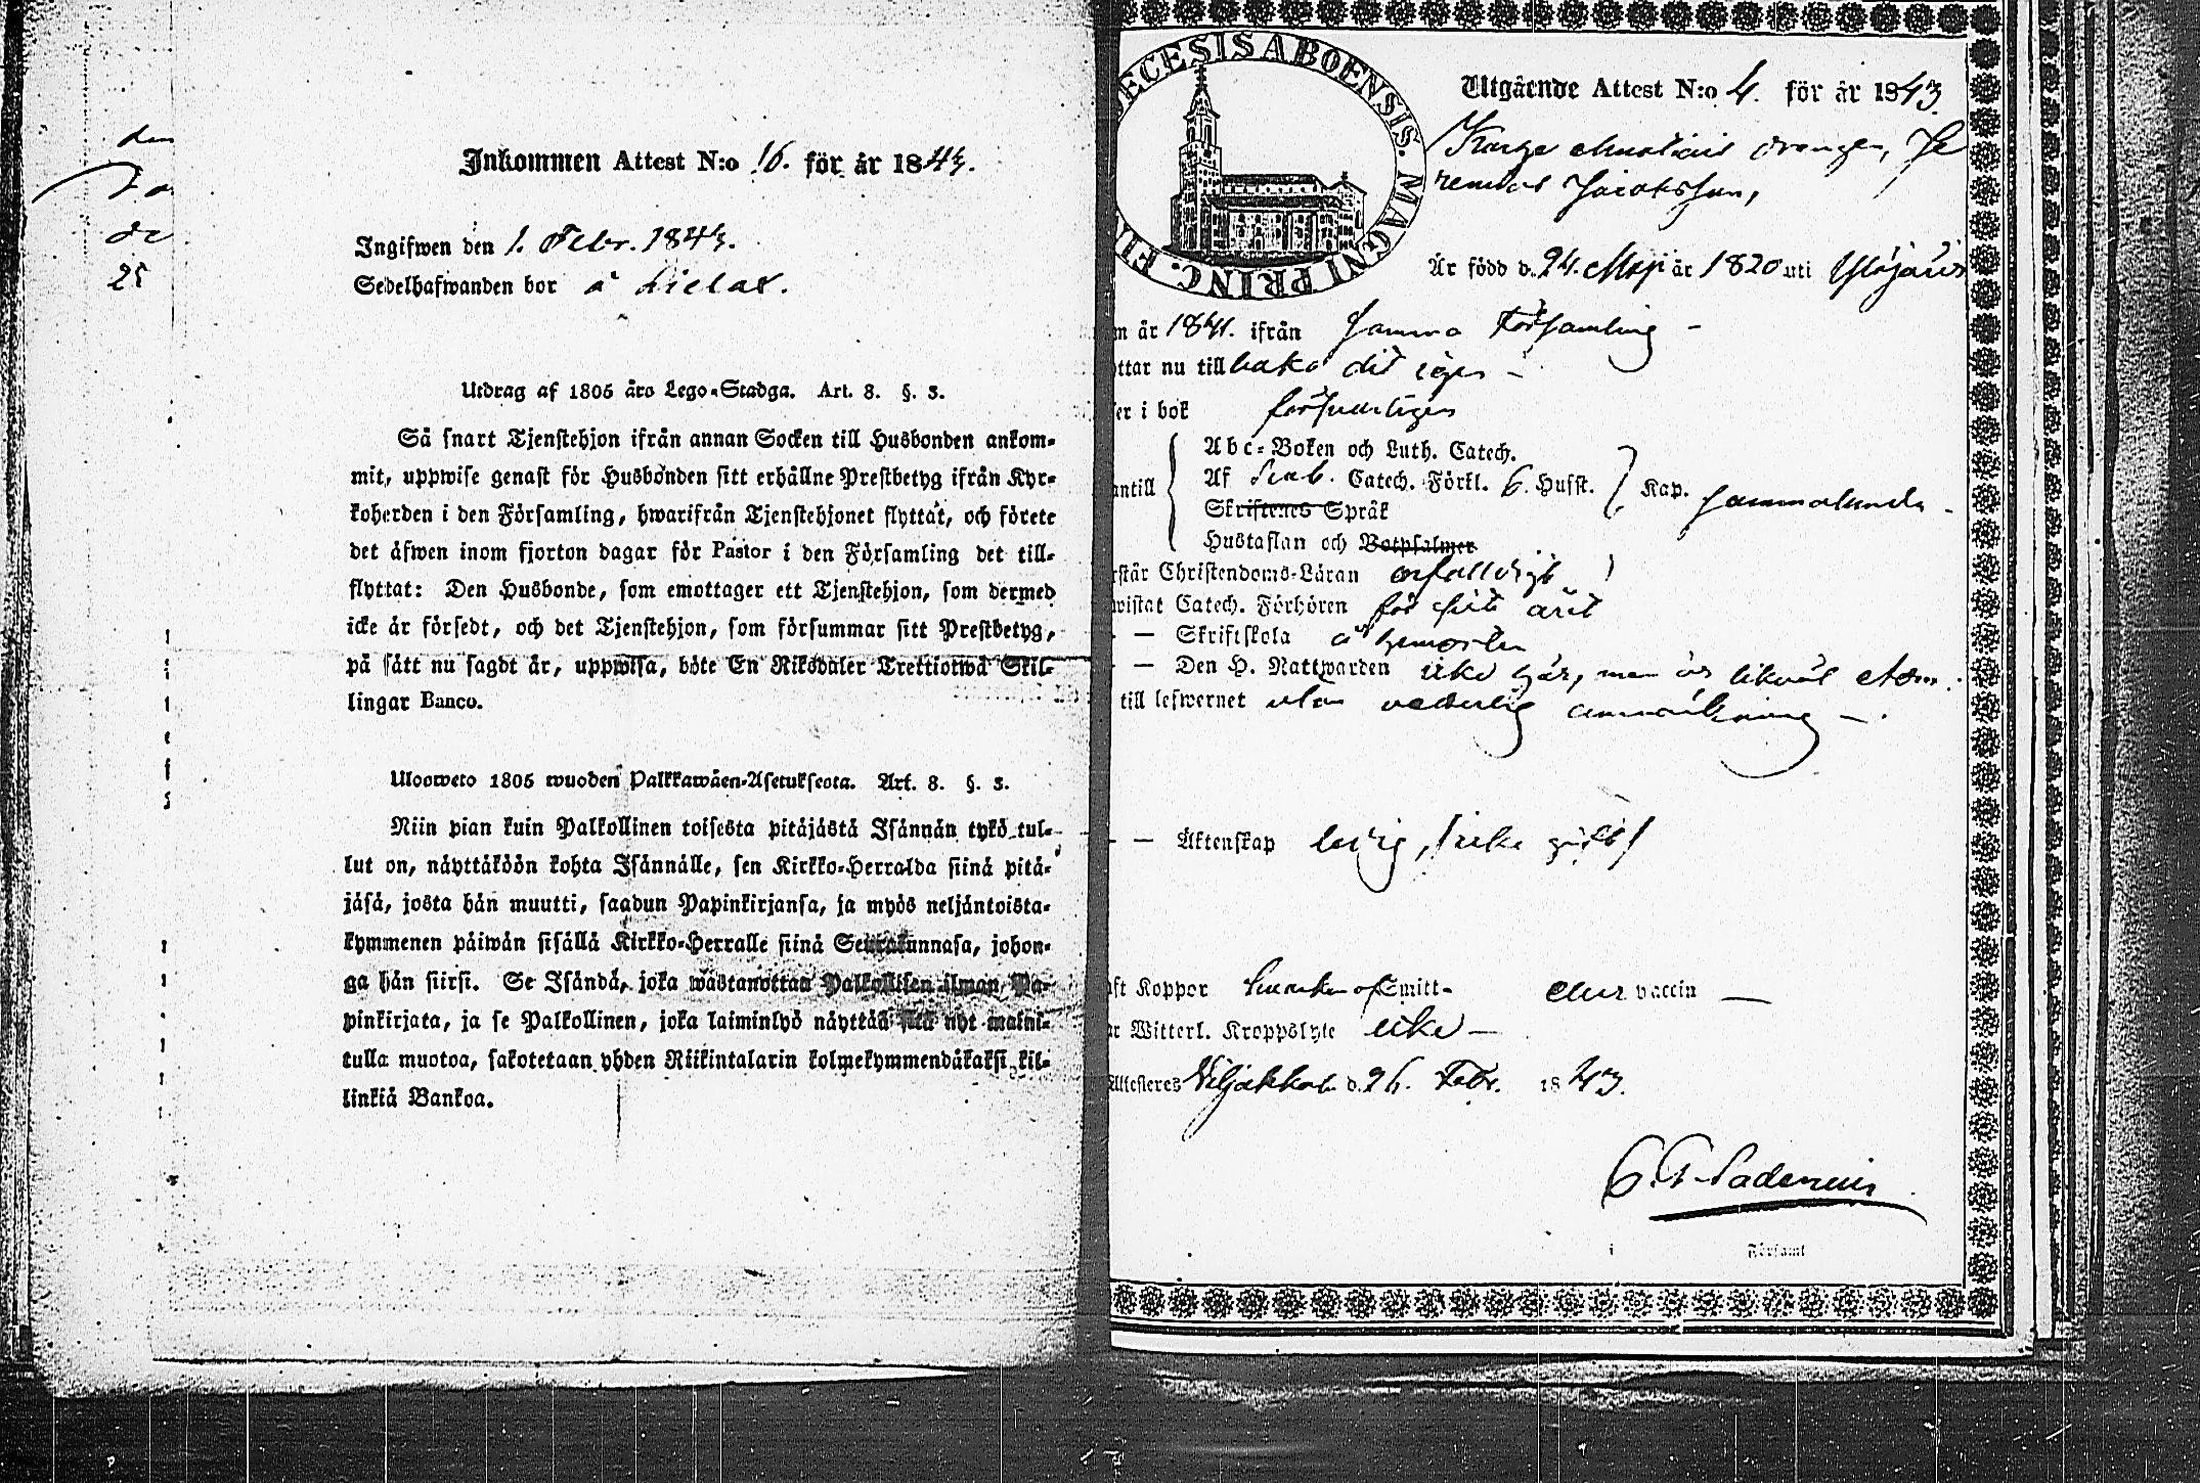 den
25
Inkommen Attest N:o 16. för år 1843.
Ingifwen den 1. Febr. 1843.
Sedelhafwanden bor å
Utdrag af 1805 års Lego-Stadga. Art. 8. §. 3.
Så snart Tjenstehjon ifrån annan Socken till Husbonden ankom-
mit, uppwise genast för Husbonden sitt erhållne Prestbetyg ifrån Kyr-
koherden i den Församling, hwarifrån Tjenstehjonet flyttat, och förete
det äfwen inom fjorton dagar för Pastor i den Församling det till-
flyttat: Den Husbonde, som emottager ett Tjenstehjon, som dermed
icke är försedt, och det Tjenstehjon, som försummar sitt Prestbetyg,
på sätt nu sagdt är, uppwisa, böte En Riksdaler Trettiotwå Skil-
lingar Banco.
Ulosweto 1805 wuoden Palkkawäen-Asetuksesta. Art. 8. §. 3.
Niin pian kuin Palkollinen toisesta pitäjästä Isännän tykö tul-
lut on, näyttäköön kohta Isännälle, sen Kirkko-Herralda siinä pitä-
jäsä, josta hän muutti, saadun Papinkirjansa, ja myös neljäntoista-
kymmenen päiwän sisällä Kirkko-Herralle siinä Seurakunnasa, johon-
ga hän siirsi. Se Isändä, joka wastanottaa Palkollisen ilman Pa-
pinkirjata, ja se Palkollinen, joka laiminlyö näyttää sitä nyt maini-
tulla muotoa, sakotetaan yhden Riikintalarin kolmekymmendäkaksi kil-
linkiä Bankoa.
ECESIS ABOENSIS. MAGNI PRINC. FIN
Utgående Attest N:o 4. för år 1843
drängen, Je
remias Jacobsson,
Är född d. 24. Maji år 1820 uti Ylöjärvi
m år 1841. ifrån samma Församling -
ttar nu till baka dit igen -
er i bok försvarligen
Abc-Boken och Luth. Catech.
antill Af Catech. Förkl. 6. Hufst. Kap. sammalunda -
Skriftenes Språk
Hustaflan och Botpsalmer
rstår Christendoms-Läran enfaldigt
wistat Catech. Förhören för sitt året
- - Skriftskola å hemorten
- - Den H. Nattwarden icke här, men är likväl
till lefwernet utan vederlig anmärkning -.
- - Äktenskap ledig, /icke gift/
ft Koppor Smitt- vaccin —
r Witterl. Kroppslyte icke —
Attesteres Viljakkala d. 26. Febr. 1843.
i Församl